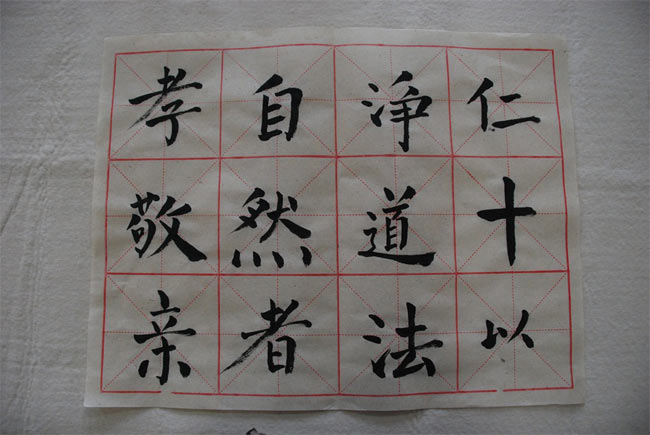 仁十以
净道法
自然者
孝敬亲